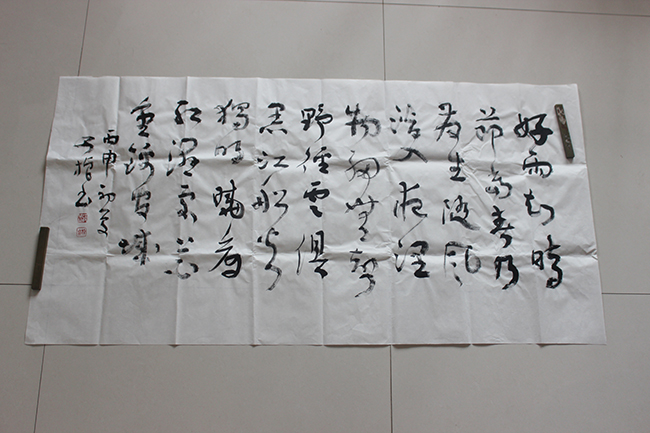 好雨知時
節當春乃
發生隨風
潛入夜潤
物細無聲
野徑雲俱
黑江船火
獨明曉看
紅濕處花
重錦官城
丙申初夏
书